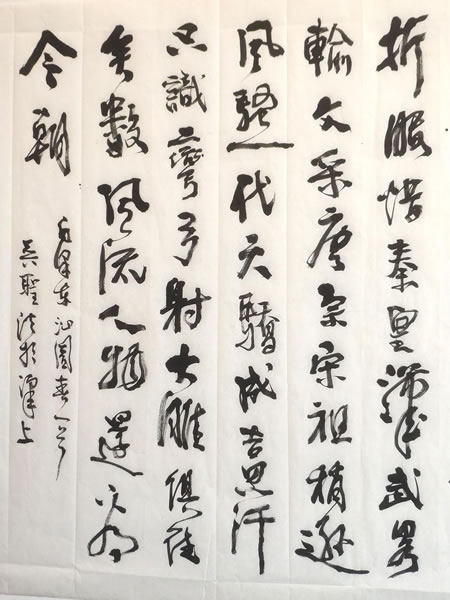 折服惜秦皇漢武略
輸文采唐宗宋祖稍遜
風騷一代天驕成吉思汗
只識彎弓射大雕俱往
矣數風流人物還看
今朝
毛澤東沁園春一首
聖法於上